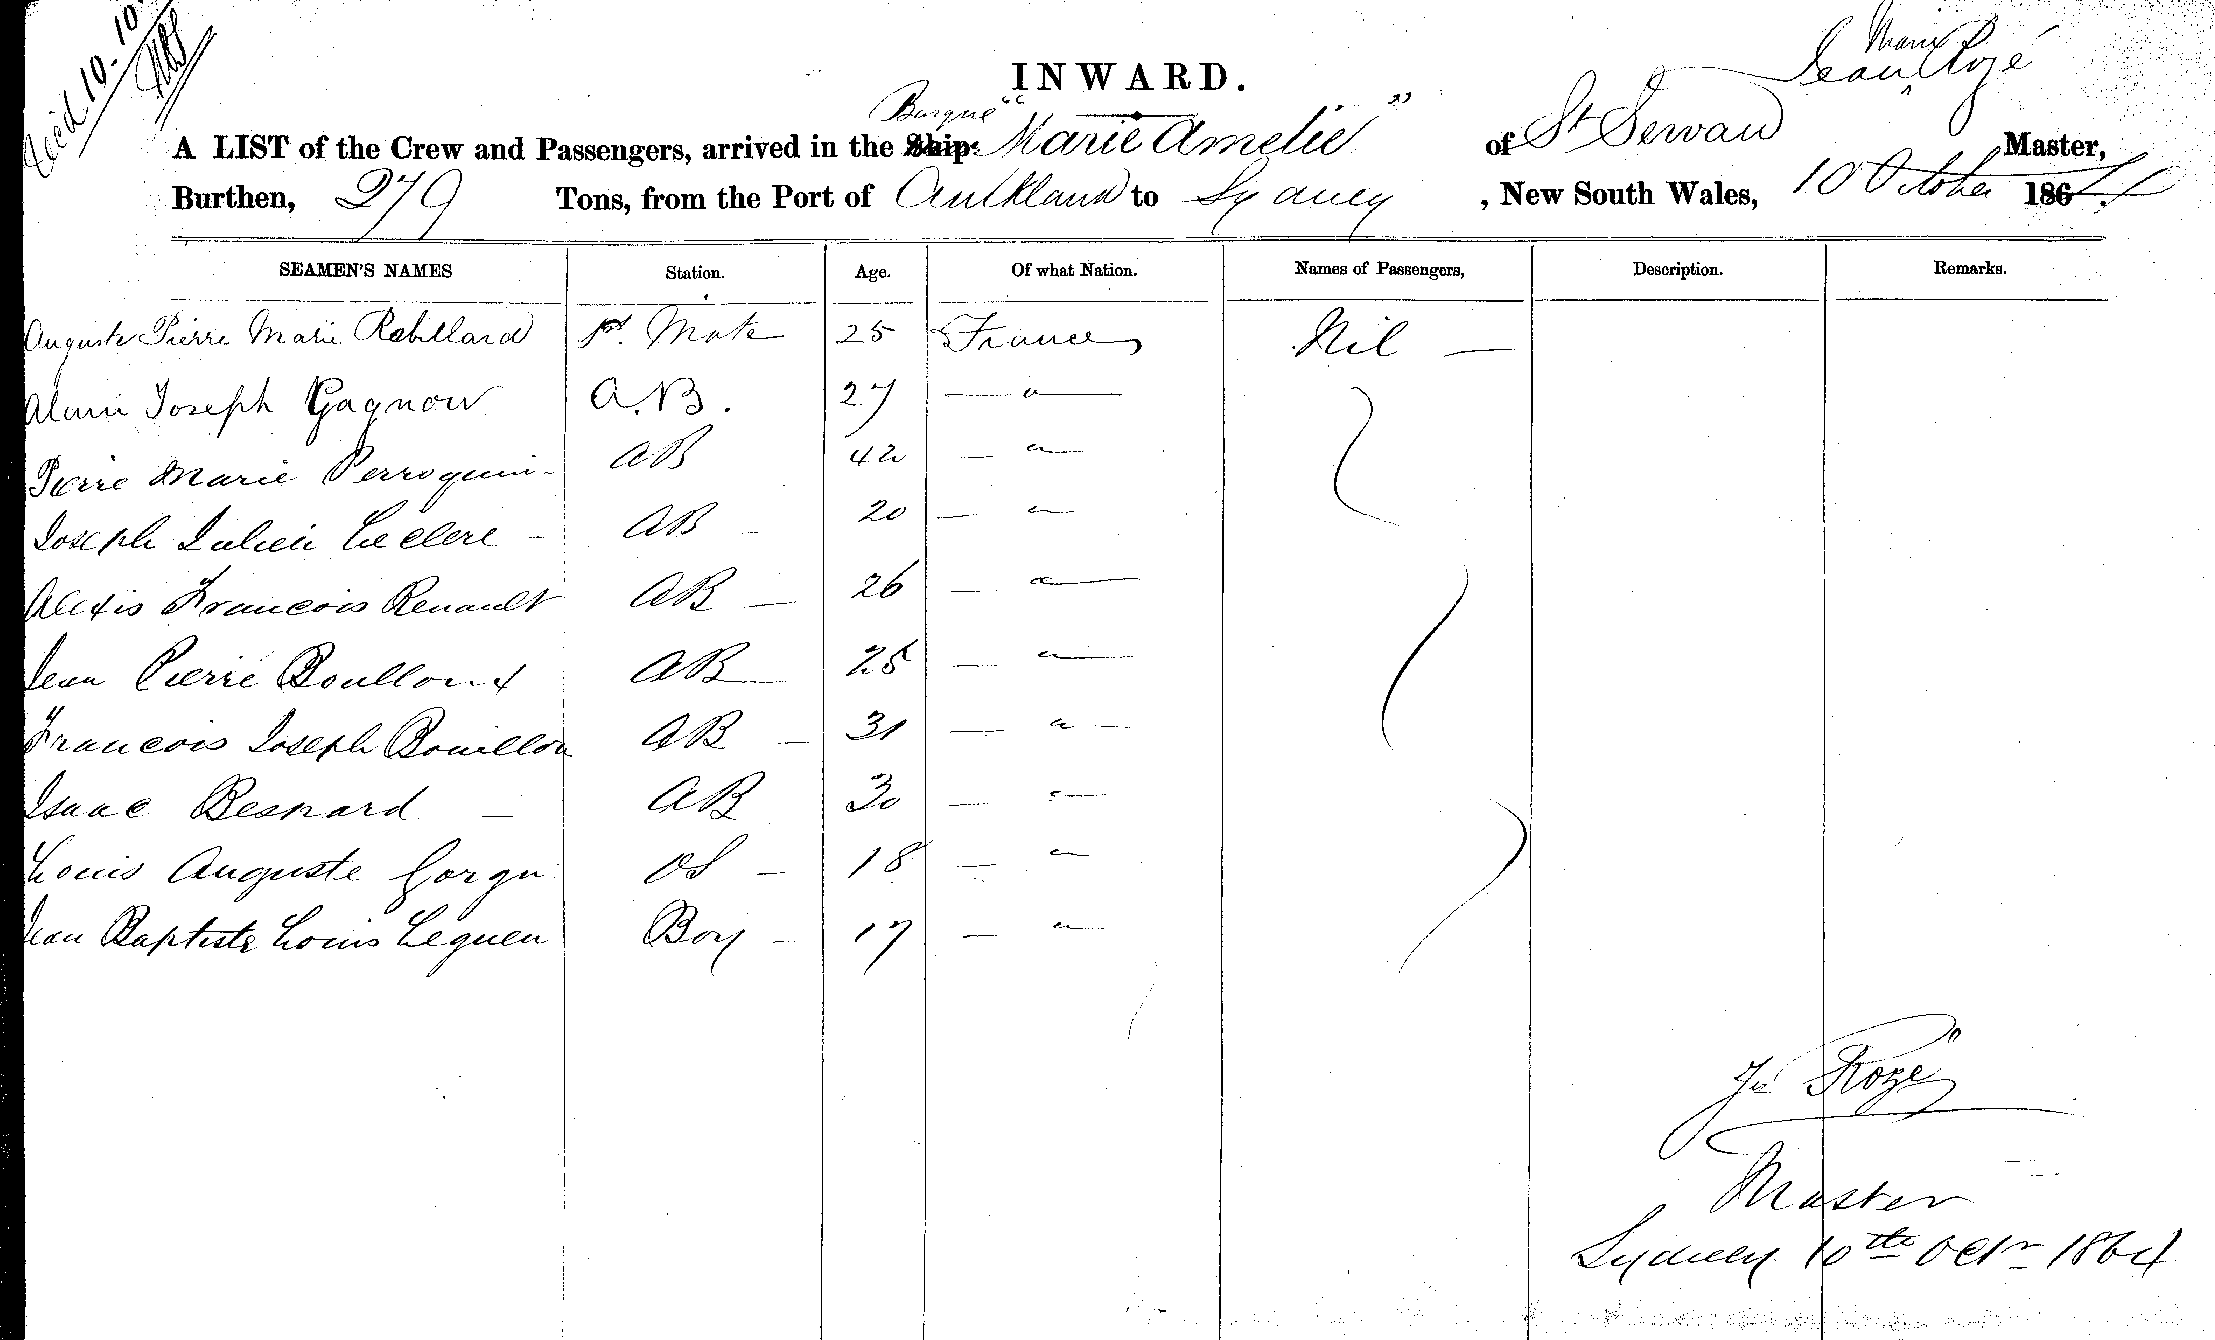 10.10.
INWARD.
Marie
Jean Rozé
Barque
A LIST of the Crew and Passengers, arrived in the Ship "Marie Amelie" of St Servan Master,
Burthen, 279 Tons, from the Port of Auckland to Sydney, New South Wales, 10 October 1864.
SEAMEN'S NAMES Station. Age. Of what Nation. Names of Passengers, Description. Remarks.
Auguste Pierre Marie Robillard 1st. Mate 25 France Nil —
Joseph Gagnow A.B. 27 — " —
Pierre Marie Perroquin - AB 42 — " —
Joseph Julien Leclere - AB - 20 — " —
Alexis Francois Renault AB — 26 — " —
Jean Pierre AB — 25 — " —
Francois Joseph Bouillon AB — 31 — " —
Isaac Besnard — AB 30 — " —
Louis Auguste Gorgu OS — 18 — " —
Jean Baptiste Louis Leguen Boy — 17 — " —
Jn Rozé
Master
Sydney 10th Octr 1864